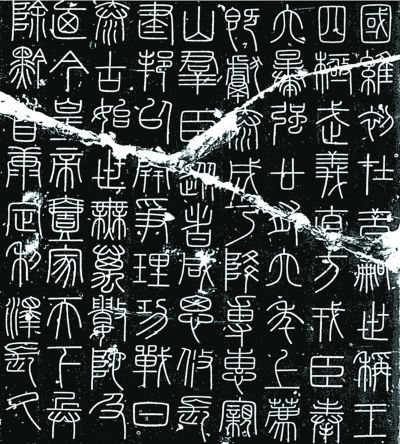 國維初在昔嗣世稱王
四極武義直方戎臣奉
六暴強廿有六年上薦
既獻泰成乃降專惠親
山羣臣從者咸思攸長
建邦以開爭理功戰日
泰古始世無萬數陀及
迺今皇帝壹家天下兵
除黔首康定利澤長久